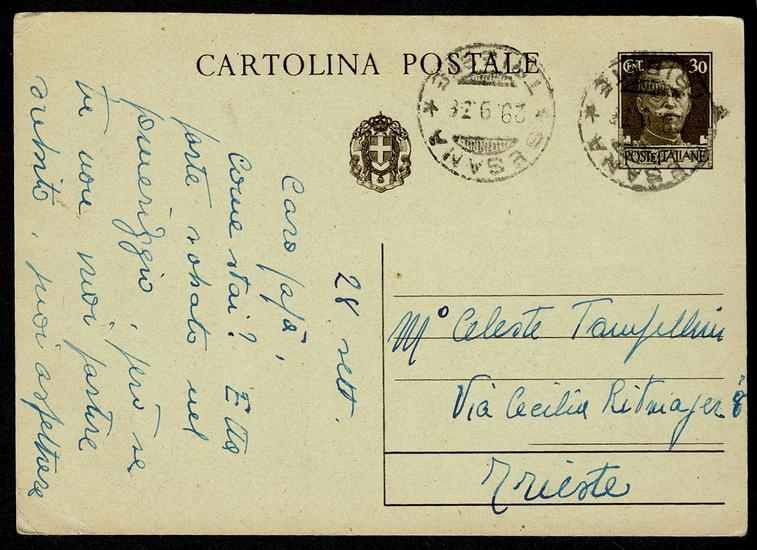 CARTOLINA POSTALE
CENT. 30
POSTE ITALIANE
SESANA
TRIESTE
29.9.38
SESANA
28 sett.
Caro papà,
Come stai?
parte sabato nel
pomeriggio, però se
tu non vuoi partire
subito, puoi aspettare
Mº Celeste Tampellini
Via Cecilia Ritmajer 8
Trieste